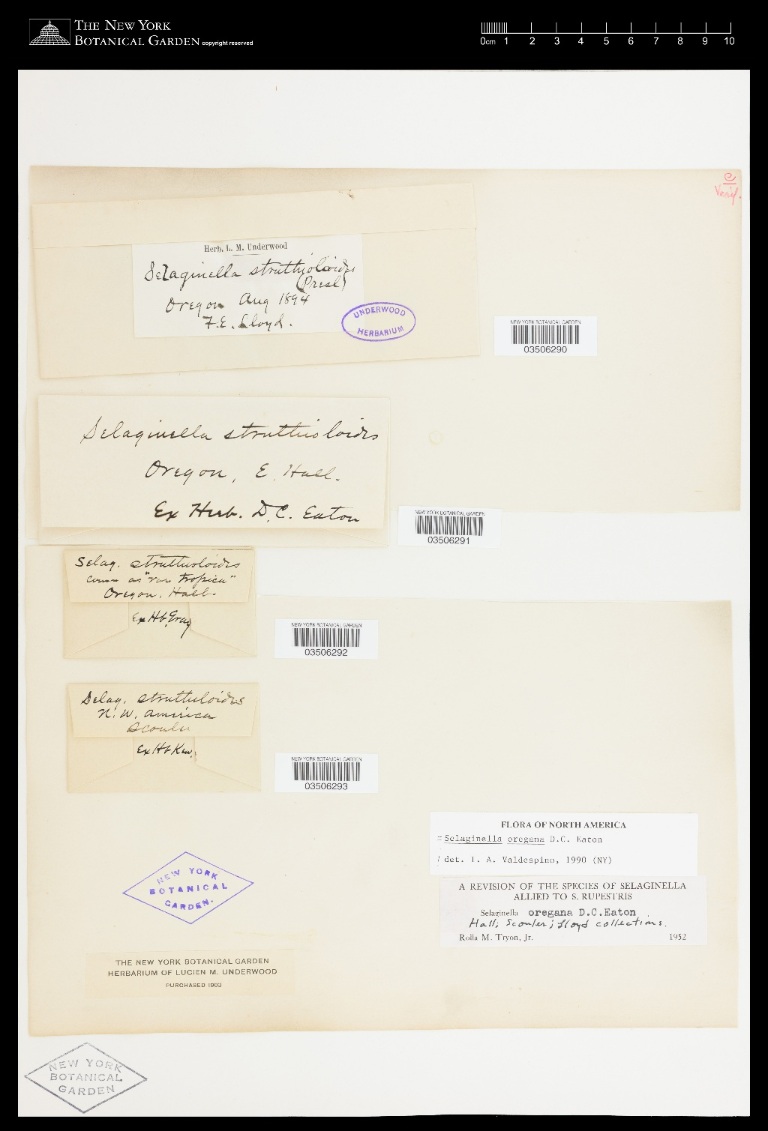 THE NEW YORK
BOTANICAL GARDEN copyright reserved
0cm 1 2 3 4 5 6 7 8 9 10
e
Verif.
Herb. L. M. Underwood
Selaginella struthioloides
(Presl)
Oregon Aug 1894
F.E. Lloyd.
UNDERWOOD
HERBARIUM
NEW YORK BOTANICAL GARDEN
03506290
Selaginella struthioloides
Oregon, E. Hall.
Ex Herb. D.C. Eaton
NEW YORK BOTANICAL GARDEN
03506291
Selag. struthioloides
as "var tropica"
Oregon. Hall.
Ex Hb. Gray
NEW YORK BOTANICAL GARDEN
03506292
Selag. struthioloides
N.W. America
Scouler
Ex Hb Kew.
NEW YORK BOTANICAL GARDEN
03506293
FLORA OF NORTH AMERICA
= Selaginella oregana D.C. Eaton
det. I. A. Valdespino, 1990 (NY)
A REVISION OF THE SPECIES OF SELAGINELLA
ALLIED TO S. RUPESTRIS
Selaginella oregana D.C.Eaton
Hall; Scouler; Lloyd collections.
Rolla M. Tryon, Jr. 1952
NEW YORK
BOTANICAL
GARDEN.
THE NEW YORK BOTANICAL GARDEN
HERBARIUM OF LUCIEN M. UNDERWOOD
PURCHASED
NEW YORK
BOTANICAL
GARDEN